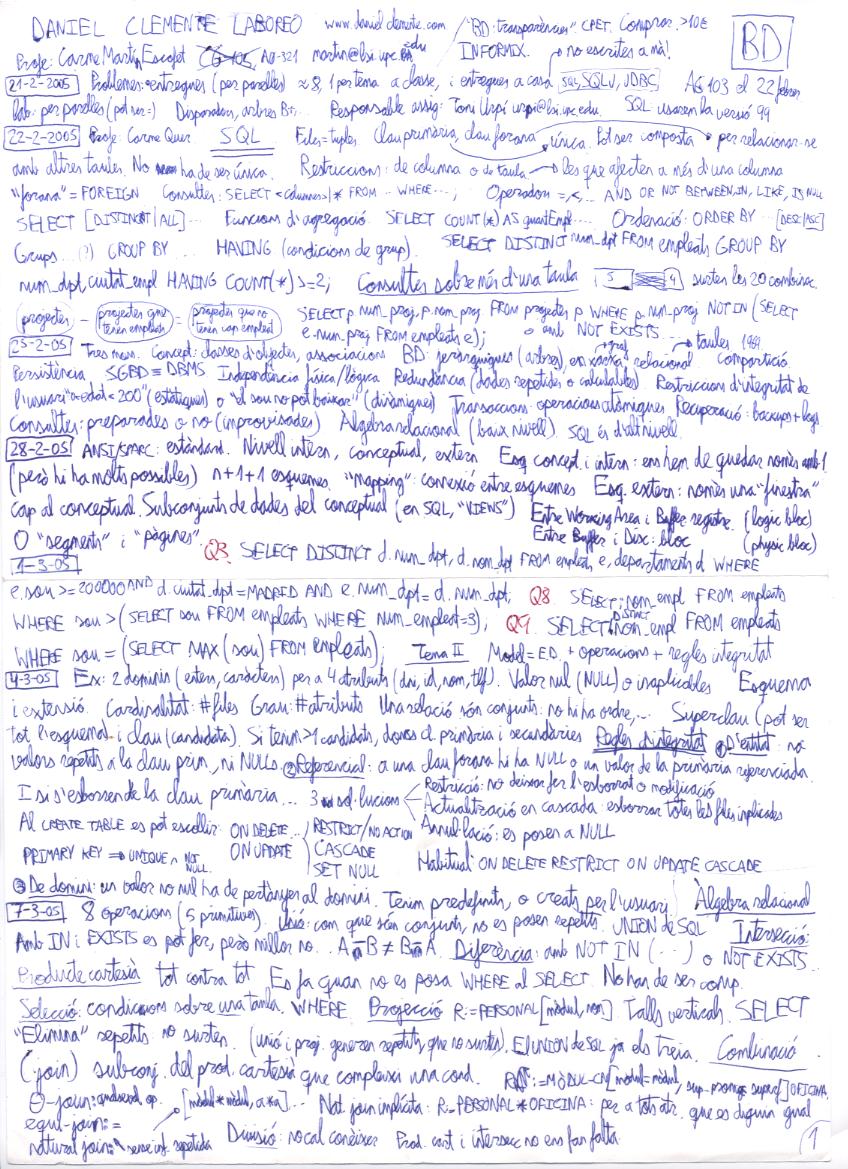 DANIEL CLEMENTE LABOREO www.danielclemente.com "BD: transparències". CPET. Comprar. >10€ BD
Profe: Carme Martín Escofet C6-105, A0-321 martin@lsi.upc.edu INFORMIX. no escrites a mà!
21-2-2005 Problemes: entregues (per parelles) ≈8, 1 per tema a classe, i entregues a casa SQL, SQLJ, JDBC A6103 el 22 febrer
Lab: per parelles (pot ser=) Disparadors, arbres B+... Responsable assig: Toni Urpí urpi@lsi.upc.edu SQL: usarem la versió 99
22-2-2005 Profe: Carme Quer SQL Files=tuples. Clau primària, clau forana única. Pot ser composta per relacionar-se
amb altres taules. No ha de ser única. Restriccions: de columna o de taula → les que afecten a més d'una columna
"forana" = FOREIGN Consultes: SELECT <columnes>|* FROM ... WHERE ...; Operadors =,<,... AND OR NOT BETWEEN, IN, LIKE, IS NULL
SELECT [DISTINCT|ALL] ... Funcions d'agregació SELECT COUNT(*) AS quantEmpl... Ordenació: ORDER BY ... [DESC|ASC]
Grups ... (?) GROUP BY ... HAVING (condicions de grup). SELECT DISTINCT num_dpt FROM empleats GROUP BY
num_dpt, ciutat_empl HAVING COUNT(*) >=2; Consultes sobre més d'una taula 5 4 surten les 20 combinac.
projectes - projectes que tenen empleats = projectes que no tenen cap empleat SELECT p.num_proj, p.nom_proj FROM projectes p WHERE p.num_proj NOT IN (SELECT
e.num_proj FROM empleats e); o amb NOT EXISTS ... taules 1969.
25-2-05 Tres mons. Concept: classes d'objectes, associacions BD: jeràrquiques (arbres), en xarxa, relacional Compartició.
Persistència SGBD = DBMS Independència física/lògica Redundància (dades repetides o calculables). Restriccions d'integritat de
l'usuari "edat<200" (estàtiques) o "el sou no pot baixar" (dinàmiques) Transaccions: operacions atòmiques Recuperació: backups+logs
Consultes: preparades o no (improvisades) Àlgebra relacional (baix nivell). SQL és d'alt nivell.
28-2-05 ANSI/SPARC: estàndard. Nivell intern, conceptual, extern Esq concept. i intern: ens hem de quedar només amb 1
(però hi ha molts possibles) n+1+1 esquemes. "mapping": connexió entre esquemes Esq. extern: només una "finestra"
cap al conceptual. Subconjunts de dades del conceptual (en SQL, "VIEWS") Entre Working Area i Buffer: registre. (logic bloc)
O "segments" i "pàgines" Entre Buffer i Disc: bloc (physic bloc)
1-3-05 Q3 SELECT DISTINCT d.num_dpt, d.nom_dpt FROM empleats e, departaments d WHERE
e.sou >= 200000 AND d.ciutat_dpt=MADRID AND e.num_dpt= d.num_dpt; Q8 SELECT nom_empl FROM empleats
WHERE sou > (SELECT sou FROM empleats WHERE num_empleat=3); Q9 SELECT DISTINCT nom_empl FROM empleats
WHERE sou = (SELECT MAX(sou) FROM empleats); Tema II Model = E.D. + operacions + regles integritat
4-3-05 Ex: 2 dominis (enters, caràcters) per a 4 atributs (dni, id, nom, tlf). Valor nul (NULL) o inaplicables Esquema
i extensió. Cardinalitat: #files Grau: #atributs Una relació són conjunts: no hi ha ordre,... Superclau (pot ser
tot l'esquema) i clau (candidata). Si tenim >1 candidats, doncs el primària i secundàries Regles d'integritat ① D'entitat: no
valors repetits a la clau prim, ni NULLs. ② Referencial: a una clau forana hi ha NULL o un valor de la primària referenciada.
I si s'esborren de la clau primària... 3 solucions Restricció: no deixar fer l'esborrat o modificació
Actualització en cascada: esborrar totes les files implicades
Al CREATE TABLE es pot escollir: ON DELETE ... RESTRICT/NO ACTION Anul·lació: es posen a NULL
PRIMARY KEY ⇒ UNIQUE ∧ NOT NULL. ON UPDATE CASCADE
SET NULL Habitual: ON DELETE RESTRICT ON UPDATE CASCADE
③ De domini: un valor no nul ha de pertànyer al domini. Tenim predefinits, o creats per l'usuari Àlgebra relacional
7-3-05 8 operacions (5 primitives). Unió: com que són conjunts, no es posen repetits. UNION de SQL Intersecció:
Amb IN i EXISTS es pot fer, però millor no... A-B ≠ B-A. Diferència: amb NOT IN (...) o NOT EXISTS...
Producte cartesià tot contra tot Es fa quan no es posa WHERE al SELECT. No han de ser comp.
Selecció: condicions sobre una taula. WHERE Projecció R:=PERSONAL[mòdul, nom] Talls verticals. SELECT
"Elimina" repetits: no surten. (unió i proj. generen repetits, que no surten). El UNION de SQL ja els treia. Combinació
(join) subconj. del prod. cartesià que compleixi una cond. :=MÒDUL-CN[mòdul=mòdul, ] OFICINA
Θ-join: op. [mòdul*mòdul, a*a]... Nat. join implícita: R:=PERSONAL*OFICINA: per a tots atr. que es diguin igual
equi-join: =
natural join: * sense inf. repetida Divisió: no cal conèixer Prod. cart i intersecc no ens fan falta. 1